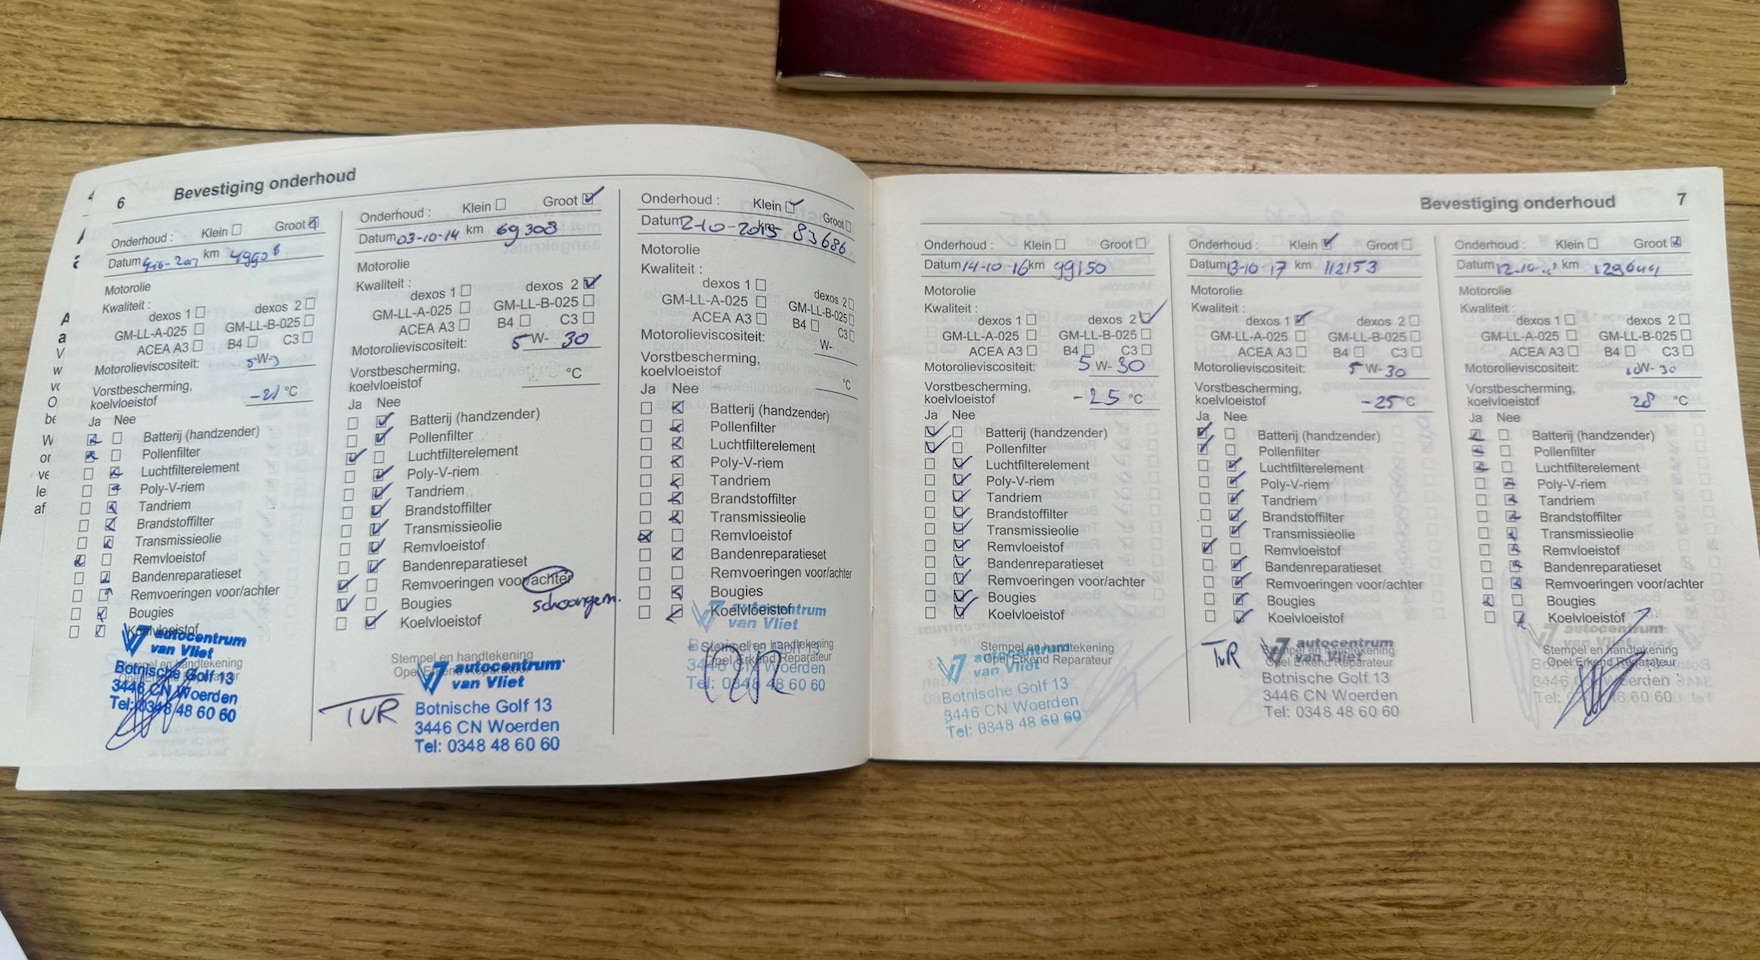 6 Bevestiging onderhoud
Onderhoud : Klein Groot
Datum km 49906
Motorolie
Kwaliteit : dexos 1 dexos 2
GM-LL-A-025 GM-LL-B-025
ACEA A3 B4 C3
Motorolieviscositeit: 5 W-
Vorstbescherming,
koelvloeistof -21 °C
Ja Nee
Batterij (handzender)
Pollenfilter
Luchtfilterelement
Poly-V-riem
Tandriem
Brandstoffilter
Transmissieolie
Remvloeistof
Bandenreparatieset
Remvoeringen voor/achter
Bougies
Koelvloeistof
Stempel en handtekening
autocentrum
van Vliet
Botnische Golf 13
3446 CN Woerden
Tel: 0348 48 60 60
Onderhoud : Klein Groot
Datum 03-10-14 km 69308
Motorolie
Kwaliteit : dexos 1 dexos 2
GM-LL-A-025 GM-LL-B-025
ACEA A3 B4 C3
Motorolieviscositeit: 5 W- 30
Vorstbescherming,
koelvloeistof °C
Ja Nee
Batterij (handzender)
Pollenfilter
Luchtfilterelement
Poly-V-riem
Tandriem
Brandstoffilter
Transmissieolie
Remvloeistof
Bandenreparatieset
Remvoeringen voor/achter
schoongem.
Bougies
Koelvloeistof
Stempel en handtekening
Opel
autocentrum
van Vliet
TVR
Botnische Golf 13
3446 CN Woerden
Tel: 0348 48 60 60
Onderhoud : Klein Groot
Datum 2-10-2015 km 83686
Motorolie
Kwaliteit :
dexos 1 dexos 2
GM-LL-A-025 GM-LL-B-025
ACEA A3 B4 C3
Motorolieviscositeit: W-
Vorstbescherming,
koelvloeistof °C
Ja Nee
Batterij (handzender)
Pollenfilter
Luchtfilterelement
Poly-V-riem
Tandriem
Brandstoffilter
Transmissieolie
Remvloeistof
Bandenreparatieset
Remvoeringen voor/achter
Bougies
Koelvloeistof
autocentrum
van Vliet
Stempel en handtekening
Opel Erkend Reparateur
Botnische Golf 13
3446 CN Woerden
Tel: 0348 48 60 60
Bevestiging onderhoud 7
Onderhoud : Klein Groot
Datum 14-10-16 km 99150
Motorolie
Kwaliteit :
dexos 1 dexos 2
GM-LL-A-025 GM-LL-B-025
ACEA A3 B4 C3
Motorolieviscositeit: 5 W-30
Vorstbescherming,
koelvloeistof -25 °C
Ja Nee
Batterij (handzender)
Pollenfilter
Luchtfilterelement
Poly-V-riem
Tandriem
Brandstoffilter
Transmissieolie
Remvloeistof
Bandenreparatieset
Remvoeringen voor/achter
Bougies
Koelvloeistof
Stempel en handtekening
Opel Erkend Reparateur
autocentrum
van Vliet
Botnische Golf 13
3446 CN Woerden
Tel: 0348 48 60 60
Onderhoud : Klein Groot
Datum 13-10-17 km 112153
Motorolie
Kwaliteit :
dexos 1 dexos 2
GM-LL-A-025 GM-LL-B-025
ACEA A3 B4 C3
Motorolieviscositeit: 5 W-30
Vorstbescherming,
koelvloeistof -25 °C
Ja Nee
Batterij (handzender)
Pollenfilter
Luchtfilterelement
Poly-V-riem
Tandriem
Brandstoffilter
Transmissieolie
Remvloeistof
Bandenreparatieset
Remvoeringen voor/achter
Bougies
Koelvloeistof
TVR
autocentrum
van Vliet
Botnische Golf 13
3446 CN Woerden
Tel: 0348 48 60 60
Onderhoud : Klein Groot
Datum km
Motorolie
Kwaliteit :
dexos 1 dexos 2
GM-LL-A-025 GM-LL-B-025
ACEA A3 B4 C3
Motorolieviscositeit: W- 30
Vorstbescherming,
koelvloeistof 28 °C
Ja Nee
Batterij (handzender)
Pollenfilter
Luchtfilterelement
Poly-V-riem
Tandriem
Brandstoffilter
Transmissieolie
Remvloeistof
Bandenreparatieset
Remvoeringen voor/achter
Bougies
Koelvloeistof
autocentrum
van Vliet
Stempel en handtekening
Opel Erkend Reparateur
3446 CN Woerden
Tel: 0348 48 60 60